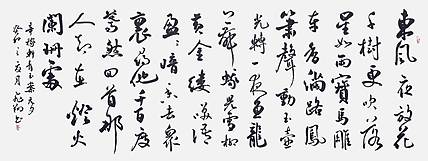 東風夜放花
千樹更吹落
星如雨寶馬雕
車香滿路鳳
簫聲動玉壺
光轉一夜魚龍
舞蛾兒雪柳
黃金縷笑語
盈盈暗香去衆
裏尋他千百度
驀然回首那
人却在燈火
闌珊處
辛稼軒青玉案元夕